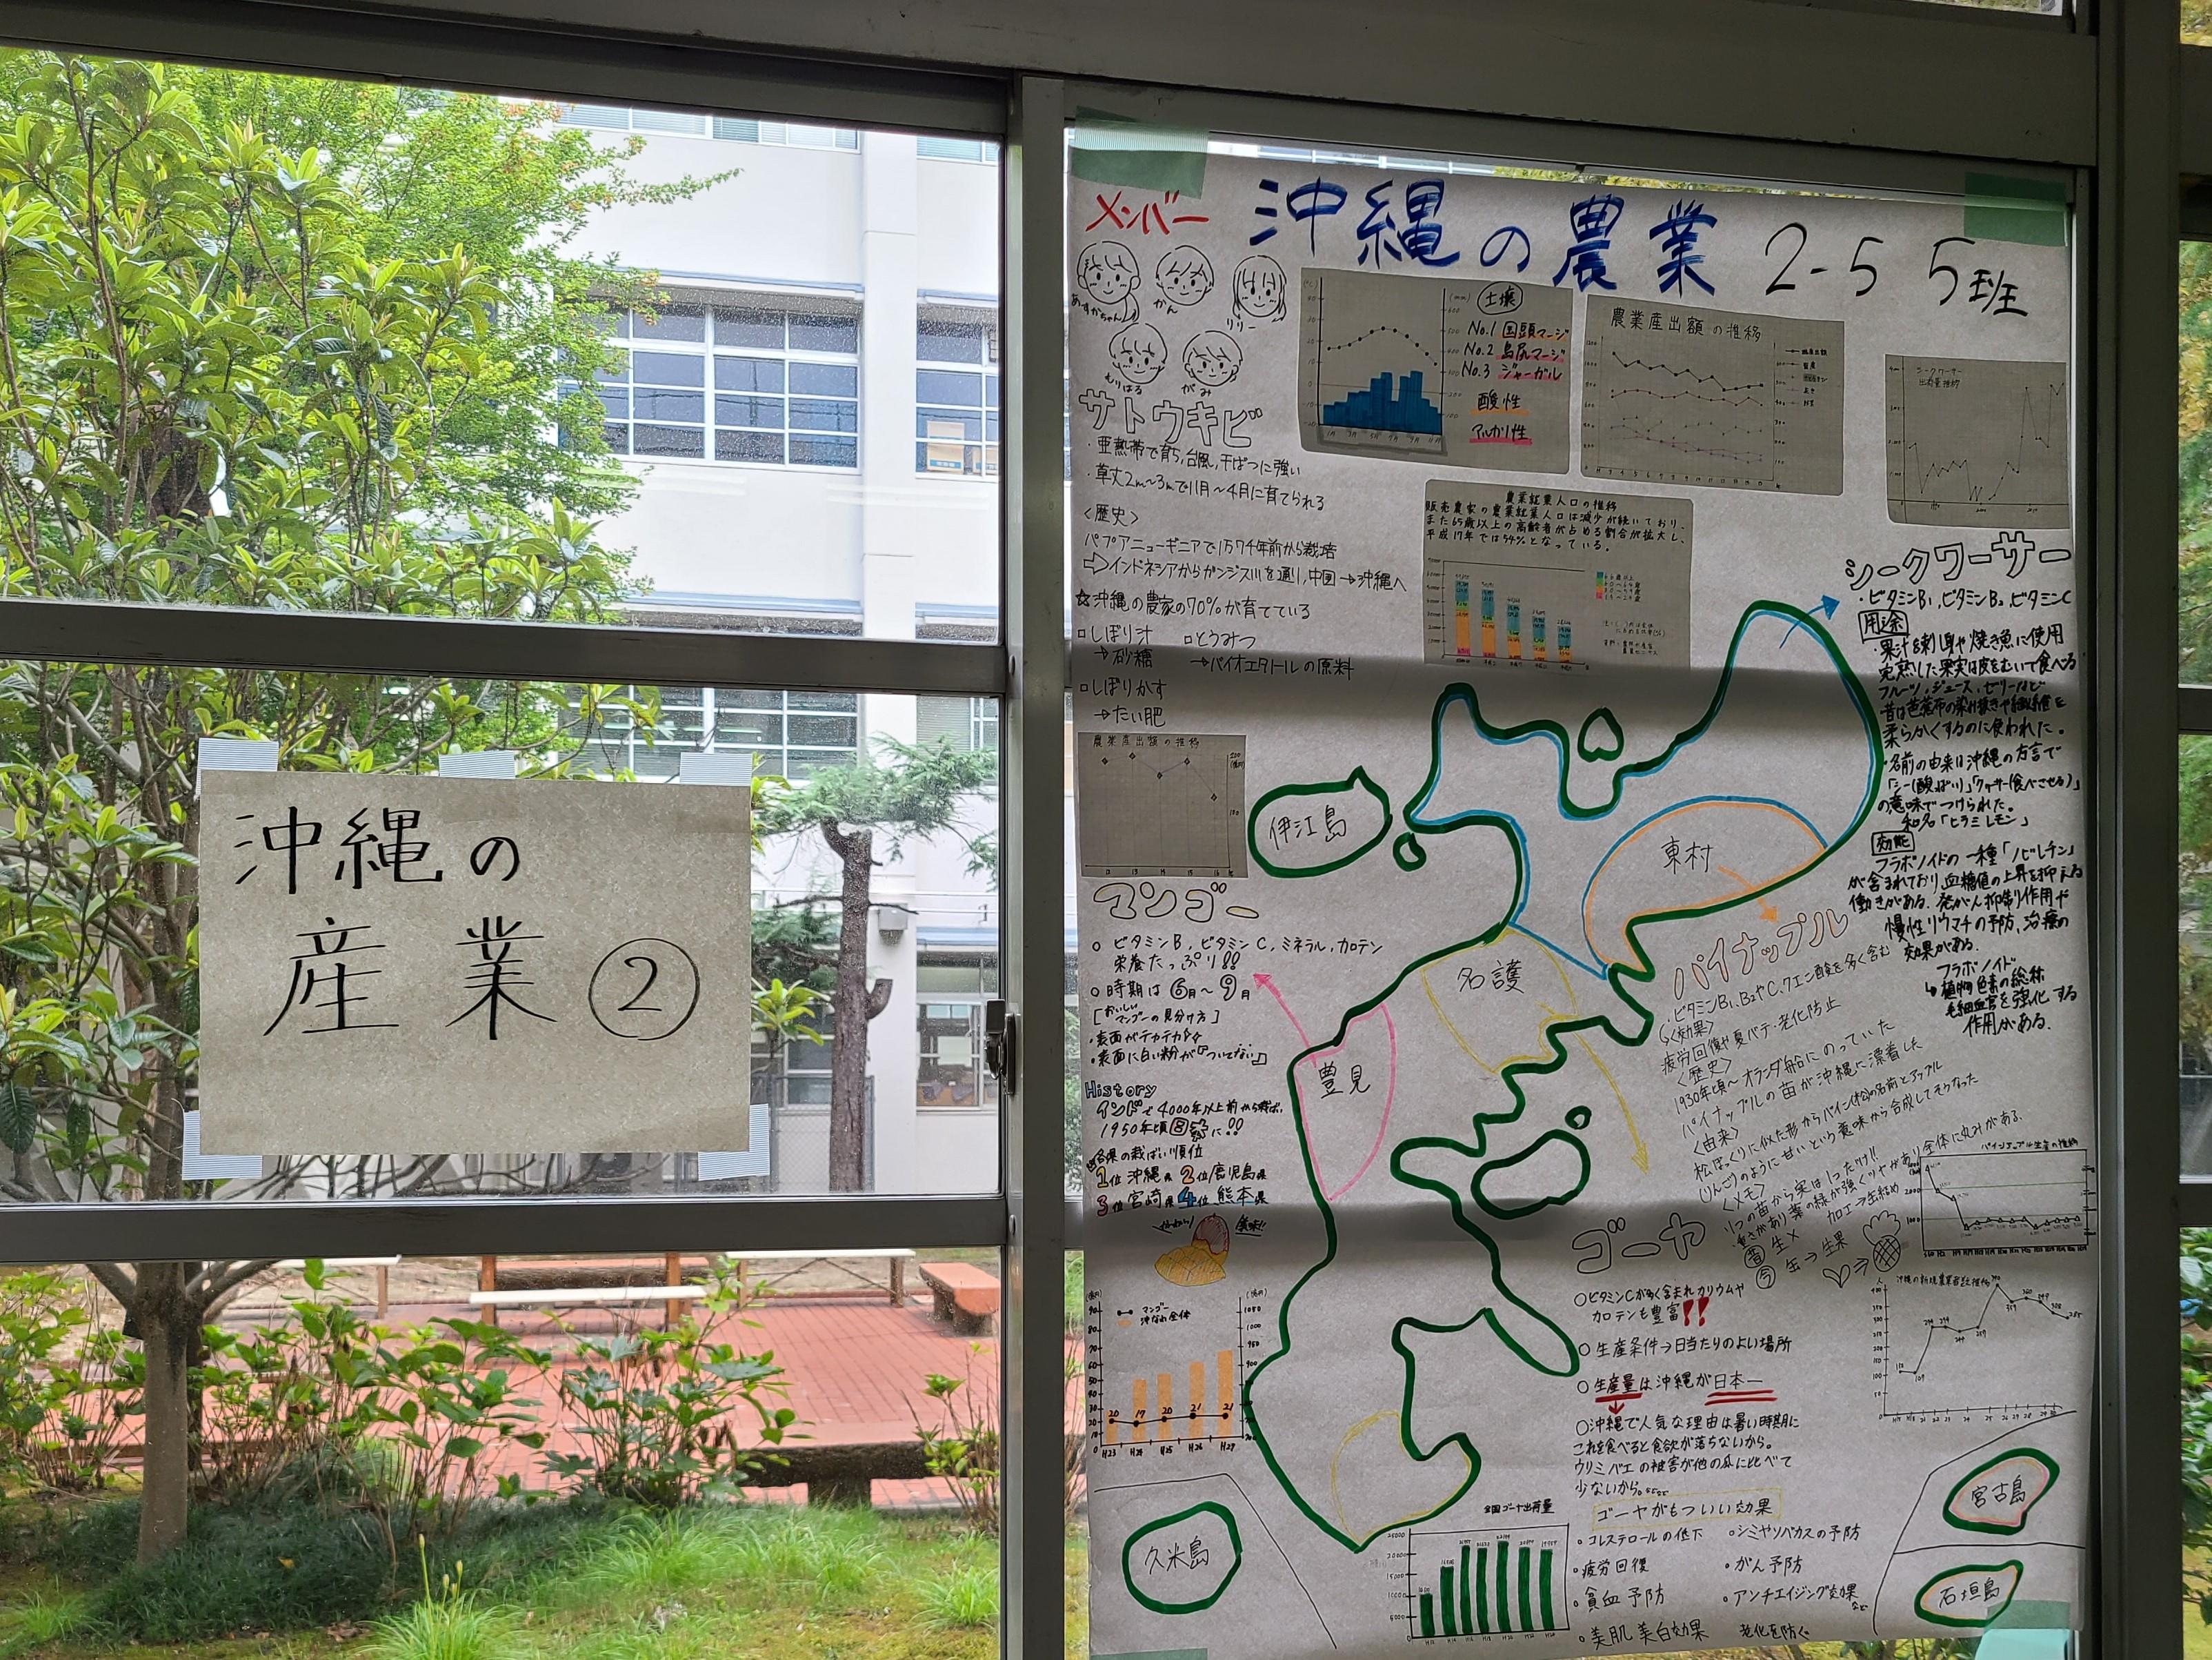 沖縄の
産業②
沖縄の農業 2-5 5班
メンバー
あすかちゃん
かん
リリー
もりはる
がみ
土壌
No.1 国頭マージ
No.2 島尻マージ
No.3 ジャーガル
酸性
アルカリ性
農業産出額の推移
シークワーサー
出荷量推移
サトウキビ
・亜熱帯で育ち,台風,干ばつに強い
・草丈2m〜3mで11月〜4月に育てられる
〈歴史〉
パプアニューギニアで1万7千年前から栽培
⇨インドネシアからガンジス川を通り,中国→沖縄へ
☆沖縄の農家の70%が育てている
□しぼり汁
→砂糖
□とうみつ
→バイオエタノールの原料
□しぼりかす
→たい肥
農業就業人口の推移
販売農家の農業就業人口は減少が続いており、
また65歳以上の高齢者が占める割合が拡大し、
平成17年では54%となっている。
農業産出額の推移
マンゴー
○ ビタミンB, ビタミンC, ミネラル, カロテン
栄養たっぷり!!
○時期は⑥月〜⑨月
[おいしいマンゴーの見分け方]
・表面がテカテカ
・表面に白い粉が『ついてない』
History
インドで4000年以上前から栽ばい
1950年頃日本に!!
各県の栽ばい順位
1位 沖縄県 2位 鹿児島県
3位 宮崎県 4位 熊本県
美味!!
マンゴー
20 17 20 21 21
H23 H24 H25 H26 H27
シークワーサー
・ビタミンB₁,ビタミンB₂,ビタミンC
用途
・果汁を刺し身や焼き魚に使用
完熟した果実は皮をむいて食べる
フルーツ,ジュース,ゼリーなど
柔らかくするのに使われた。
・名前の由来は沖縄の方言で
「シー(酸っぱい)」「クワーサー(食べさせる)」
の意味でつけられた。
和名「ヒラミレモン」
効能
フラボノイドの一種「ノビレチン」
が含まれており血糖値の上昇を抑える
働きがある。発がん抑制作用や
慢性リウマチの予防、治療の
効果がある。
フラボノイド
↳植物色素の総称
毛細血管を強化する
作用がある.
伊江島
東村
名護
豊見
パイナップル
・ビタミンB₁,B₂やC,クエン酸を多く含む
〈効果〉
疲労回復や夏バテ・老化防止
〈歴史〉
1930年頃〜オランダ船にのっていた
パイナップルの苗が沖縄に漂着した
〈由来〉
松ぼっくりに似た形からパイン(松)の名前とアップル
(りんご)のように甘いという意味から合成してそうなった
〈メモ〉
1つの苗から実は1つだけ!!
・重さがあり葉の緑が強くツヤがあり全体に丸みがある.
昔 生× 加工→缶詰め
今 缶→生果
パイナップル生産の推移
ゴーヤ
○ビタミンCが多く含まれカリウムや
カロテンも豊富!!
○生産条件→日当たりのよい場所
○生産量は沖縄が日本一
○沖縄で人気な理由は暑い時期に
これを食べると食欲が落ちないから。
ウリミバエの被害が他の瓜に比べて
少ないから。
ゴーヤがもついい効果
・コレステロールの低下
・シミやソバカスの予防
・疲労回復
・がん予防
・貧血予防
・アンチエイジング効果など
・美肌美白効果
老化を防ぐ
全国ゴーヤ出荷量
久米島
宮古島
石垣島